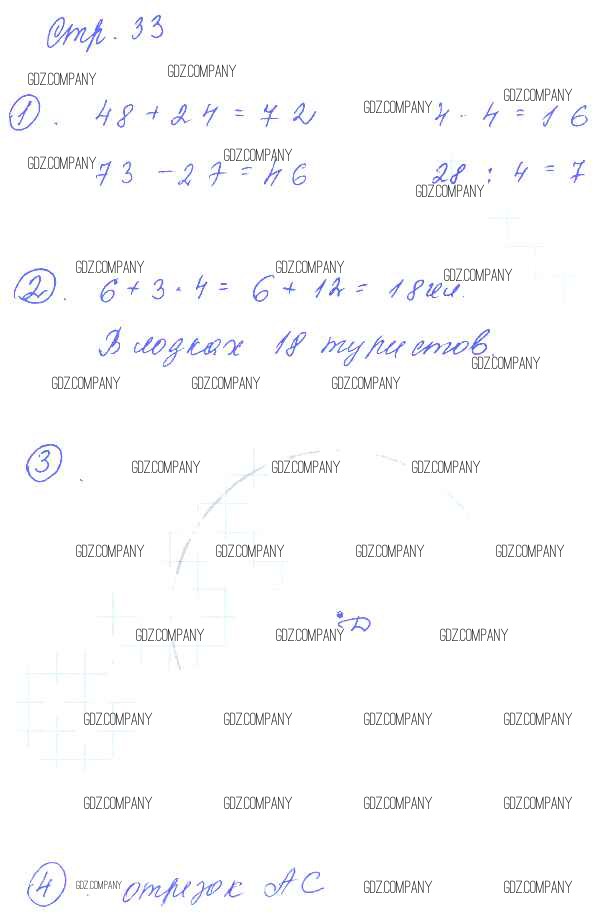 Стр. 33
GDZ.COMPANY GDZ.COMPANY
1. 48 + 24 = 72 GDZ.COMPANY 4 · 4 = 16 GDZ.COMPANY
GDZ.COMPANY 73 - 27 = 46 GDZ.COMPANY 28 : 4 = 7 GDZ.COMPANY
GDZ.COMPANY GDZ.COMPANY GDZ.COMPANY
2. 6 + 3 · 4 = 6 + 12 = 18 чел.
В лодках 18 туристов. GDZ.COMPANY
GDZ.COMPANY GDZ.COMPANY GDZ.COMPANY
3. GDZ.COMPANY GDZ.COMPANY GDZ.COMPANY
GDZ.COMPANY GDZ.COMPANY GDZ.COMPANY GDZ.COMPANY
GDZ.COMPANY GDZ.COMPANY D GDZ.COMPANY
GDZ.COMPANY GDZ.COMPANY GDZ.COMPANY GDZ.COMPANY
GDZ.COMPANY GDZ.COMPANY GDZ.COMPANY GDZ.COMPANY
4. GDZ.COMPANY отрезок АС GDZ.COMPANY GDZ.COMPANY